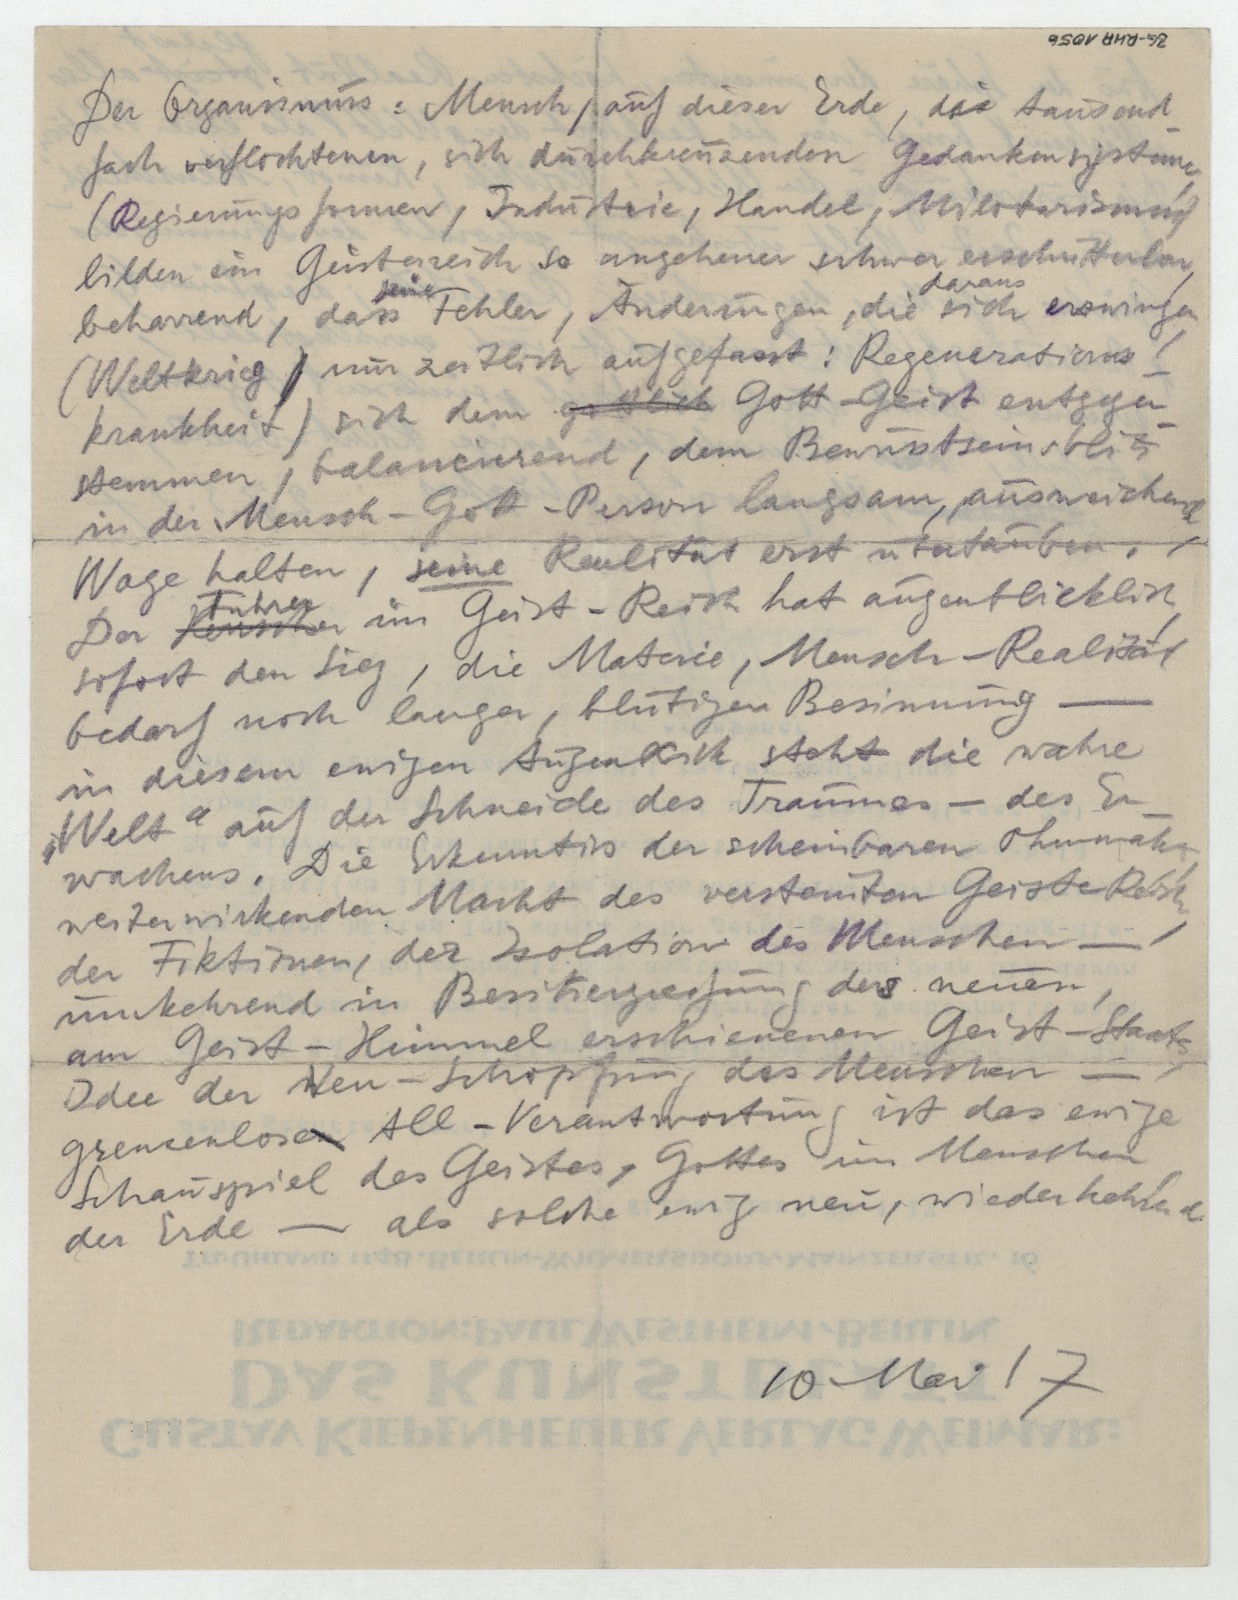 BG-RHA 1056
Der Organismus : Mensch, auf dieser Erde, die tausend
fach verflochtenen, sich durchkreuzenden Gedankensysteme,
(Regierungsformen, Industrie, Handel, Militarismus)
bilden ein Geisterreich so ungeheuer schwer erschütterbar,
beharrend, dass seine Fehler, Änderungen, die daraus sich erzwingen
(Weltkrieg) nur zeitlich aufgefasst : Regenerations
krankheit) sich dem göttlich Gott-Geist entgegen
stemmen, balancierend, dem Bewusstseinsblitz
in der Mensch-Gott-Person langsam, ausweichend
Wage halten, seine Realität erst
Der Führer im Geist-Reich hat augenblicklich,
sofort den Sieg, die Materie, Mensch-Realität
bedarf noch langer, blutiger Besinnung —
in diesem ewigen Augenblick steht die wahre
„Welt“ auf der Schneide des Traumes — des Er
wachens. Die Erkenntis der scheinbaren Ohnmacht,
weiterwirkenden Macht des Geiste Reich,
der Fiktionen, der Isolation des Menschen —
umkehrend in Besitzergreifung des neuen,
am Geist-Himmel erschienenen Geist-Staats
Idee der Neu-Schöpfung des Menschen —
grenzenlose All-Verantwortung ist das ewige
Schauspiel des Geistes, Gottes im Menschen
der Erde — als solche ewig neu, wiederkehrend
TEL. UHLAND 1148. BERLIN-WILMERSDORF/MAINZERSTR. 16
REDAKTION: PAUL WESTHEIM/BERLIN
DAS KUNSTBLATT
GUSTAV KIEPENHEUER VERLAG WEIMAR:
10 Mai 17